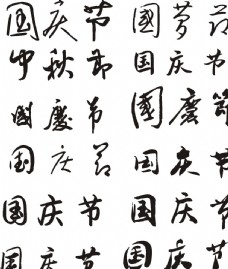 国庆节 國慶节
中秋节 国庆节
國慶节 國慶節
国庆节 国庆节
国庆节 国庆节
国庆节 国庆节